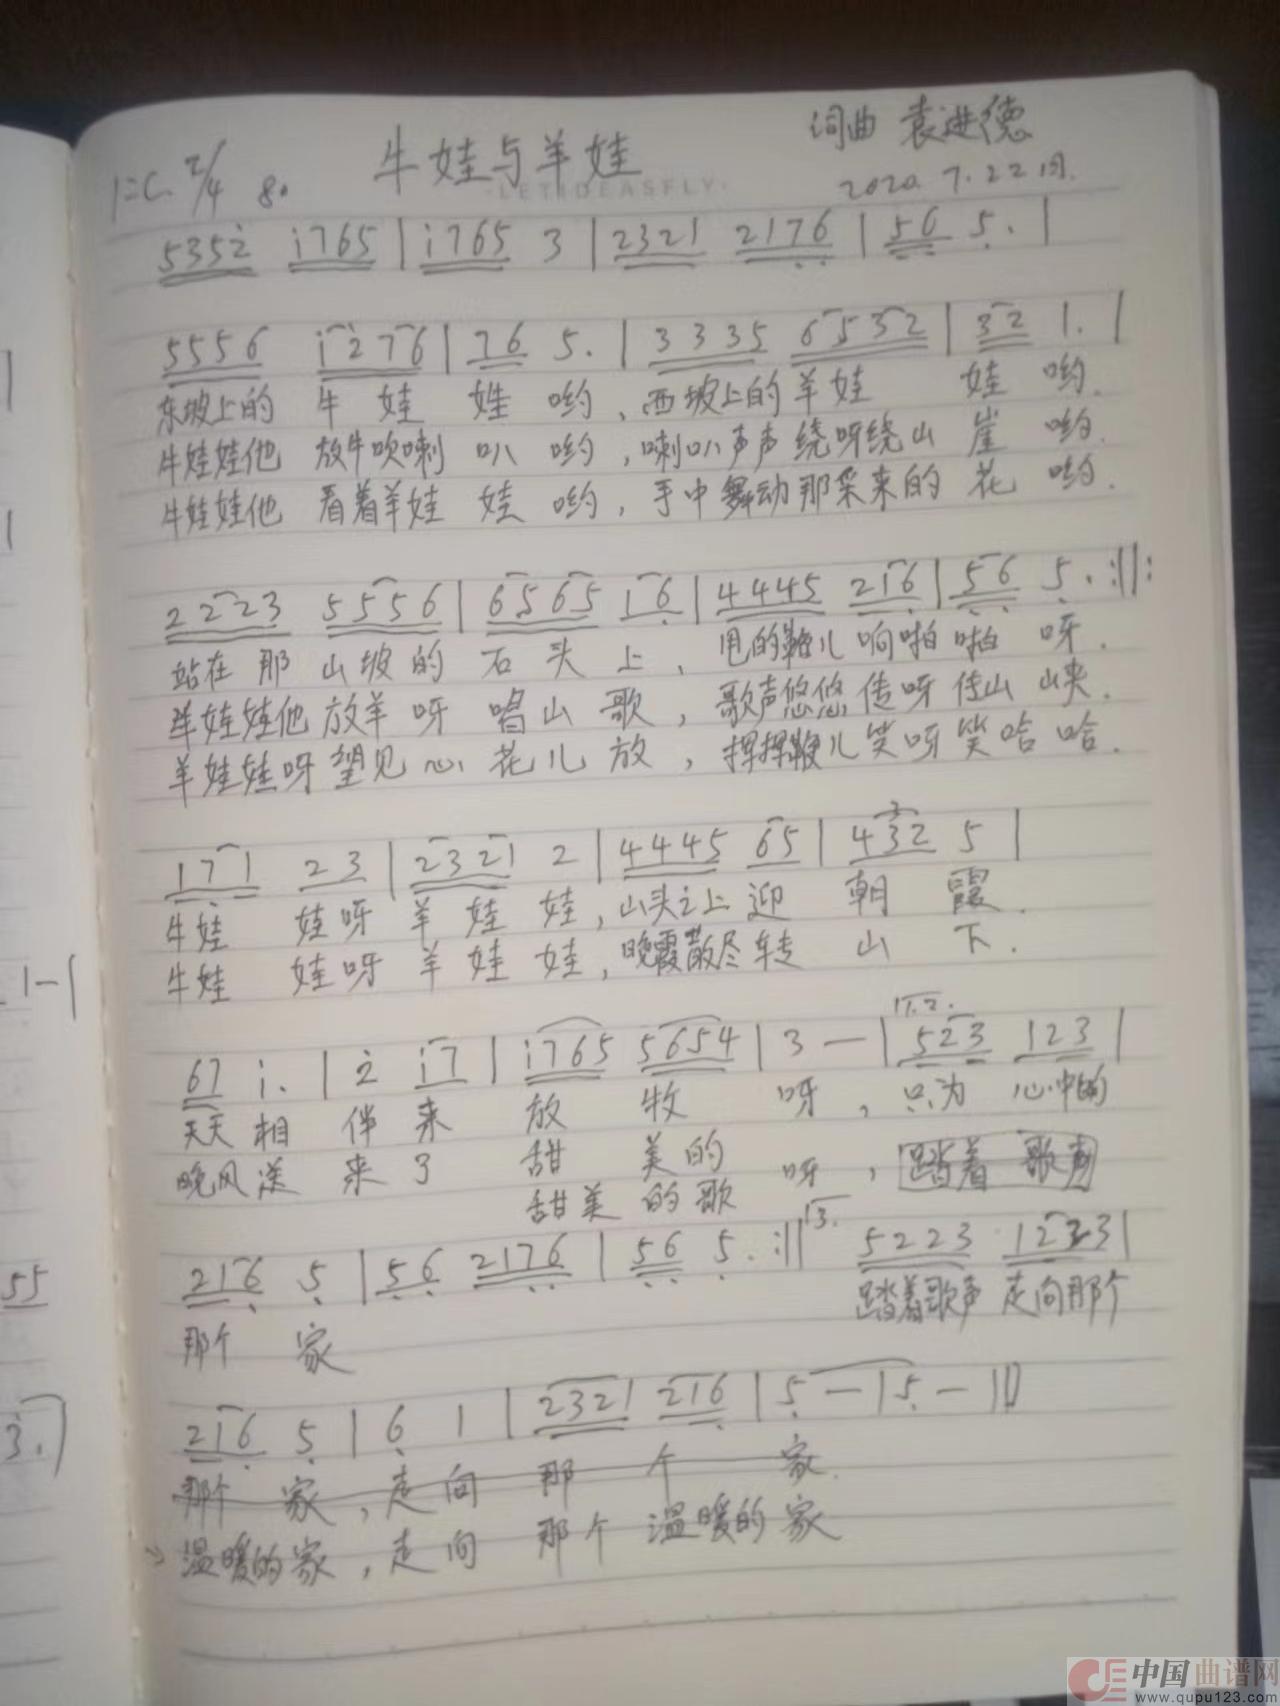 牛娃与羊娃
词曲 袁进德
1=C 2/4 80
2020.7.22日.
LETIDEASFLY
5352 1765 | 1765 3 | 2321 2176 | 56 5. |
5556 1276 | 76 5. | 3335 6532 | 32 1. |
东坡上的 牛娃 娃哟，西坡上的羊娃 娃哟.
牛娃娃他 放牛吹喇叭哟，喇叭声声绕呀绕山崖哟.
牛娃娃他 看着羊娃娃哟，手中舞动那采来的花哟.
2223 5556 | 6565 16 | 4445 216 | 56 5. :||:
站在那山坡的石头上，甩的鞭儿响啪啪呀.
羊娃娃他放羊呀唱山歌，歌声悠悠传呀传山峡.
羊娃娃呀望见心花儿放，挥挥鞭儿笑呀笑哈哈.
171 23 | 2321 2 | 4445 65 | 432 5 |
牛娃 娃呀羊娃娃，山头之上迎朝霞.
牛娃 娃呀羊娃娃，晚霞散尽转山下.
67 1. | 2 17 | 1765 5654 | 3 — | 1.2. 523 123 |
天天相伴来放牧呀，只为心中的
晚风送来了甜美的呀，踏着歌声
甜美的歌
216 5 | 56 2176 | 56 5. :|| 3. 5223 1233 |
踏着歌声走向那个
那个 家
216 5 | 6 1 | 2321 216 | 5 — | 5 — ||
那个家，走向那个家.
温暖的家，走向那个温暖的家
55
3.
中国曲谱网
www.qupu123.com